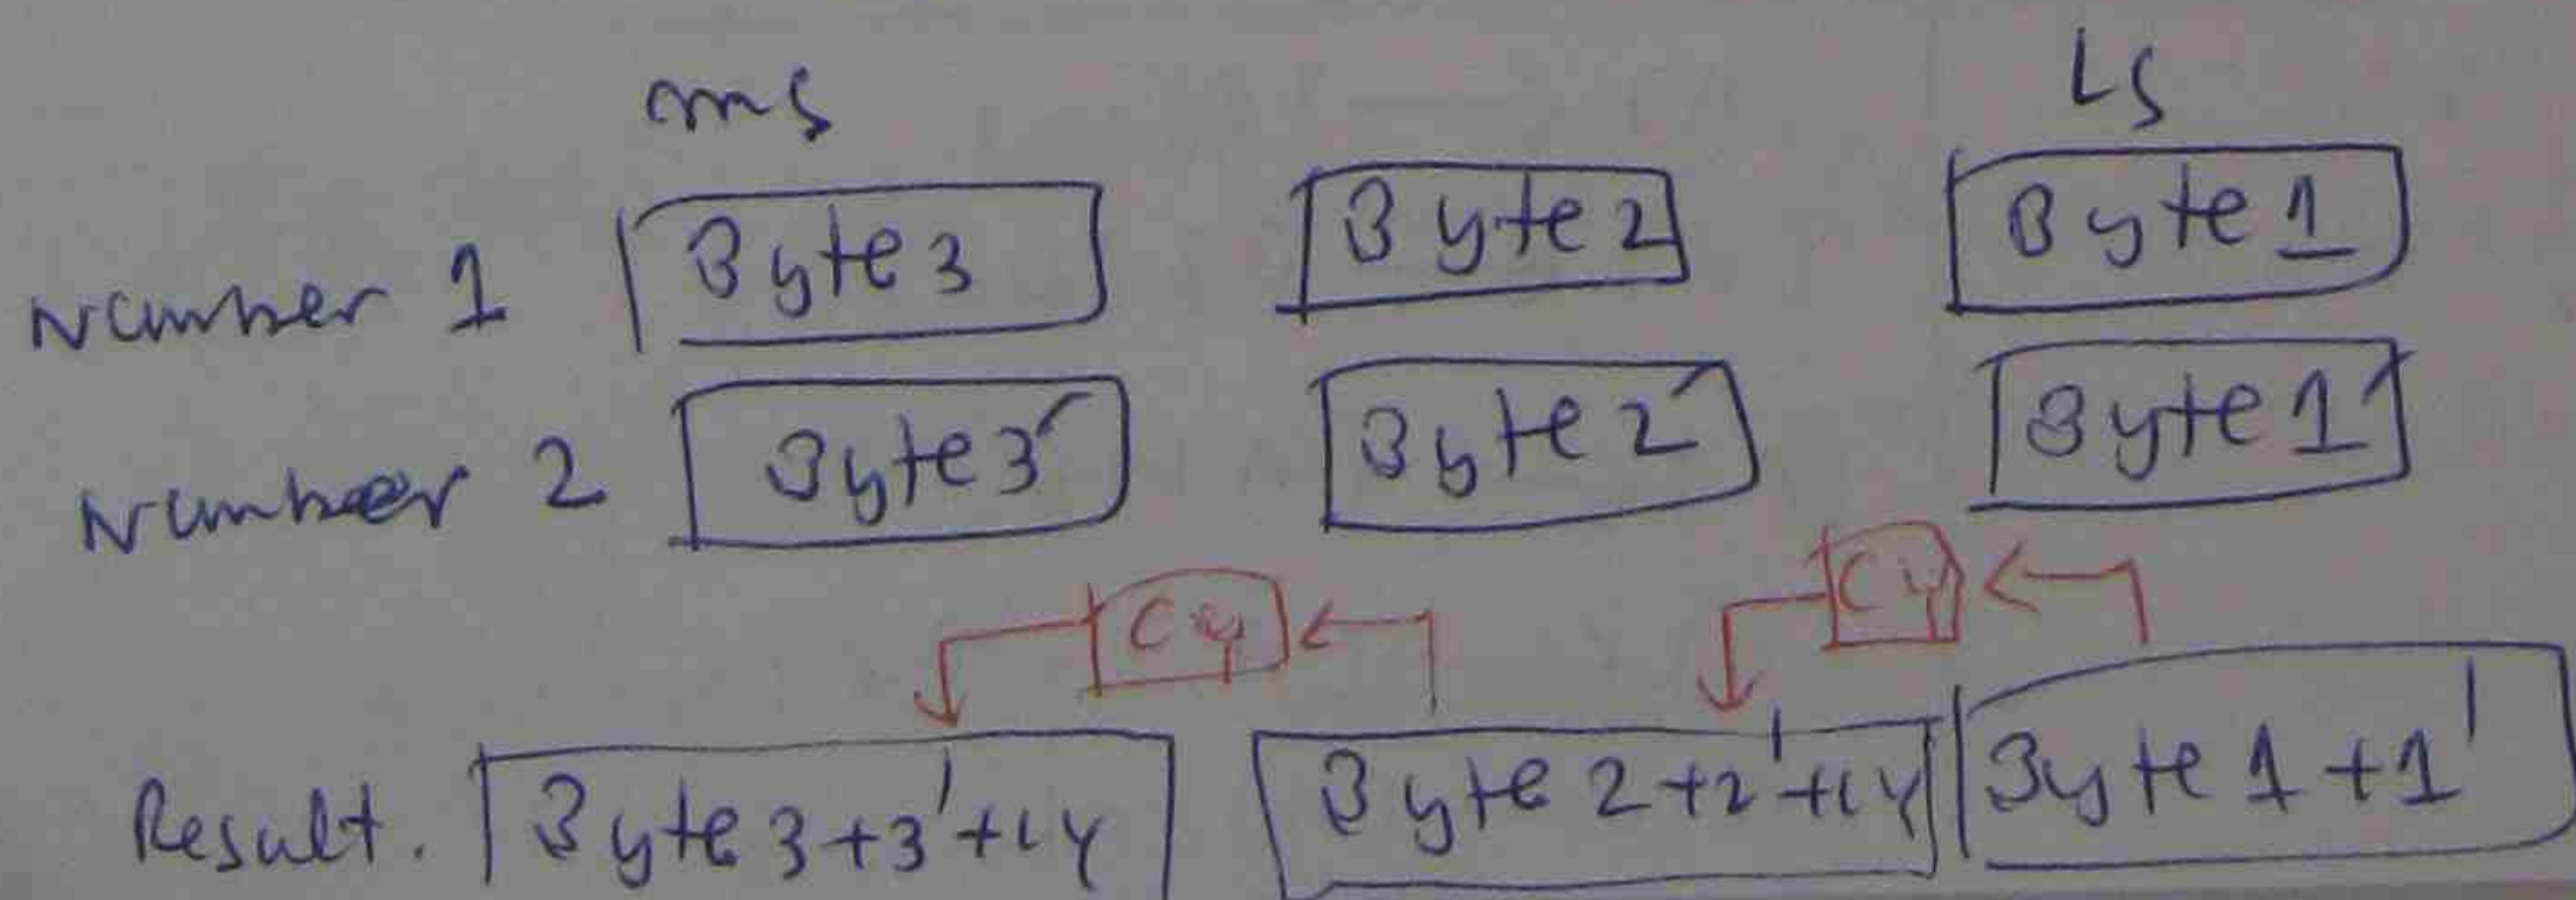 ms LS
Number 1 Byte 3 Byte 2 Byte 1
Number 2 Byte 3' Byte 2' Byte 1'
Cy Cy
Result. Byte 3+3'+CY Byte 2+2'+CY Byte 1+1'